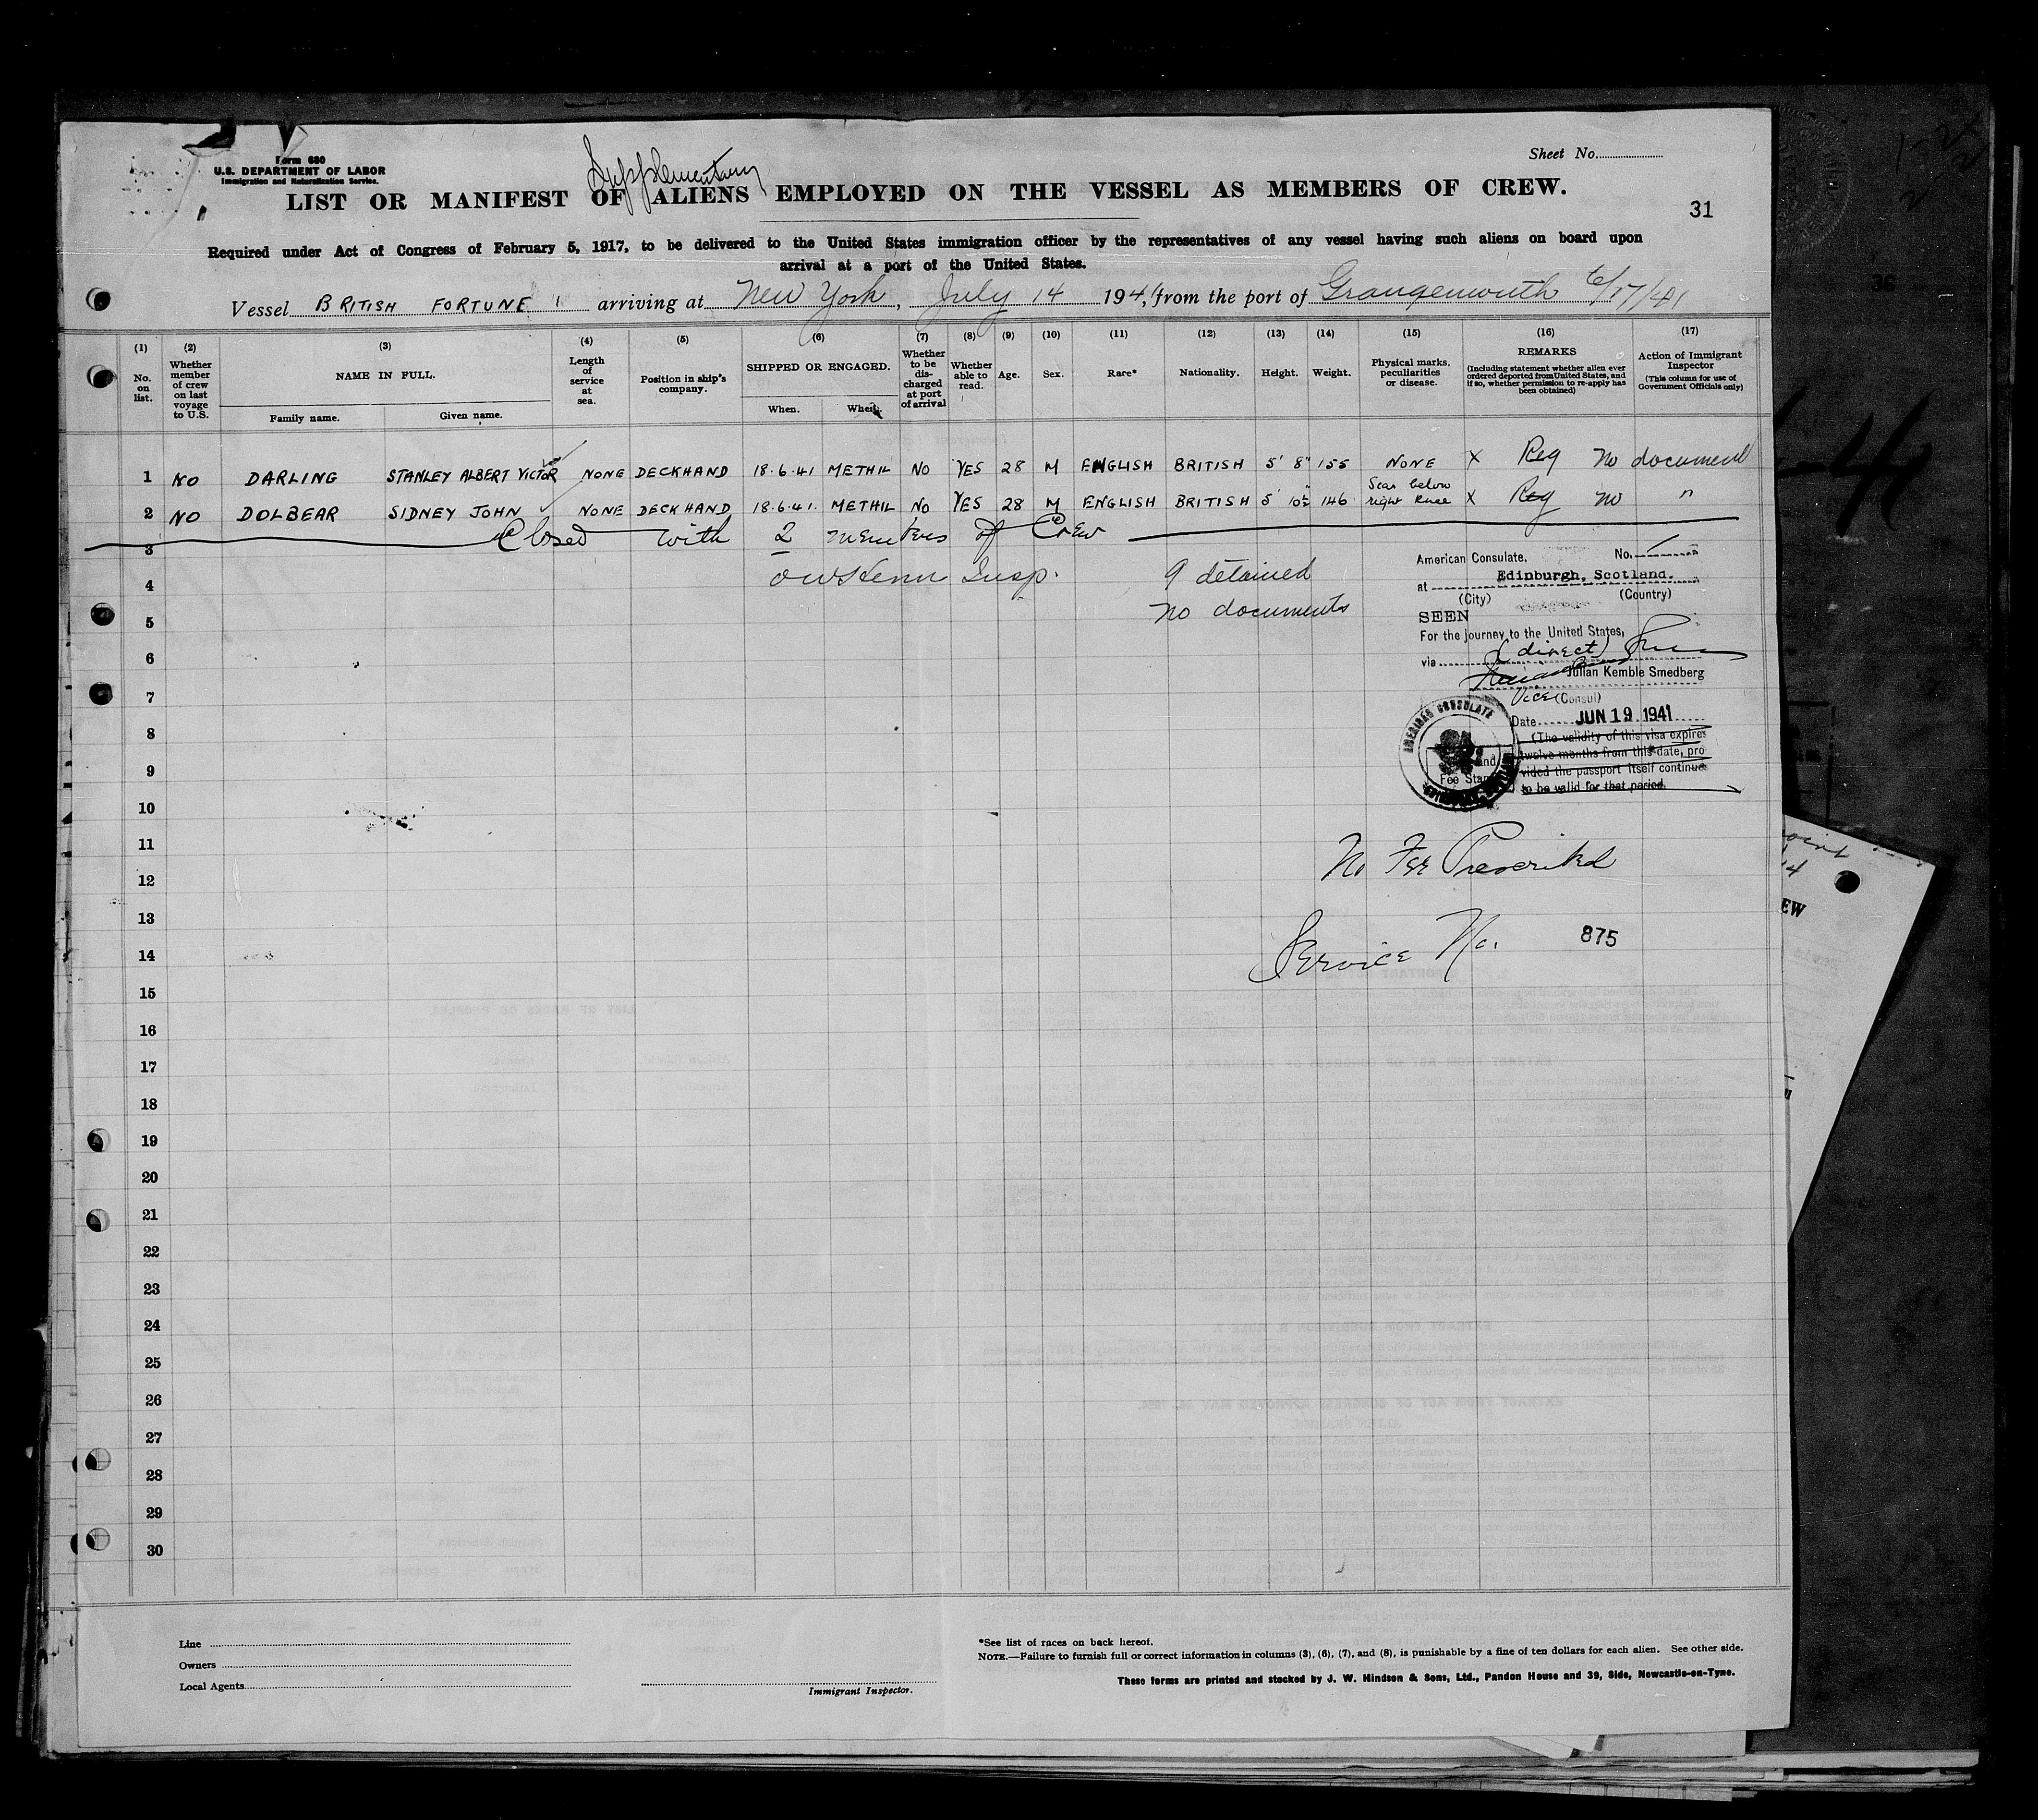 Form 680
U.S. DEPARTMENT OF LABOR
Immigration and Naturalization Service.
Sheet No.
Supplementary
LIST OR MANIFEST OF ALIENS EMPLOYED ON THE VESSEL AS MEMBERS OF CREW.
31
Required under Act of Congress of February 5, 1917, to be delivered to the United States immigration officer by the representatives of any vessel having such aliens on board upon
arrival at a port of the United States.
Vessel BRITISH FORTUNE arriving at New York, July 14 1941, from the port of Grangemouth 6/17/41
(1) No. on list.
(2) Whether member of crew on last voyage to U.S.
(3) NAME IN FULL. Family name. Given name.
(4) Length of service at sea.
(5) Position in ship's company.
(6) SHIPPED OR ENGAGED. When. Where.
(7) Whether to be discharged at port of arrival
(8) Whether able to read.
(9) Age.
(10) Sex.
(11) Race*
(12) Nationality.
(13) Height.
(14) Weight.
(15) Physical marks, peculiarities or disease.
(16) REMARKS (Including statement whether alien ever ordered deported from United States, and if so, whether permission to re-apply has been obtained)
(17) Action of Immigrant Inspector (This column for use of Government Officials only)
1 NO DARLING STANLEY ALBERT VICTOR NONE DECKHAND 18.6.41 METHIL NO YES 28 M ENGLISH BRITISH 5' 8" 155 NONE X Reg No document
2 NO DOLBEAR SIDNEY JOHN NONE DECKHAND 18.6.41. METHIL NO YES 28 M ENGLISH BRITISH 5' 10½" 146 Scar below right knee X Reg no "
3 Closed with 2 members of Crew
4 Insp. 9 detained
5 no documents
6
7
8
9
10
11
12
13
14
15
16
17
18
19
20
21
22
23
24
25
26
27
28
29
30
American Consulate, No.
at Edinburgh, Scotland.
(City) (Country)
SEEN
For the journey to the United States,
via (direct)
Julian Kemble Smedberg
Vice (Consul)
Date JUN 19 1941
(The validity of this visa expires
twelve months from this date, pro
vided the passport itself continues
to be valid for that period.
AMERICAN CONSULATE
Fee Stamp
No Fee Prescribed
Service No. 875
Line
Owners
Local Agents
Immigrant Inspector.
*See list of races on back hereof.
NOTE.—Failure to furnish full or correct information in columns (3), (6), (7), and (8), is punishable by a fine of ten dollars for each alien. See other side.
These forms are printed and stocked by J. W. Hindson & Sons, Ltd., Pandon House and 39, Side, Newcastle-on-Tyne.
36
EW